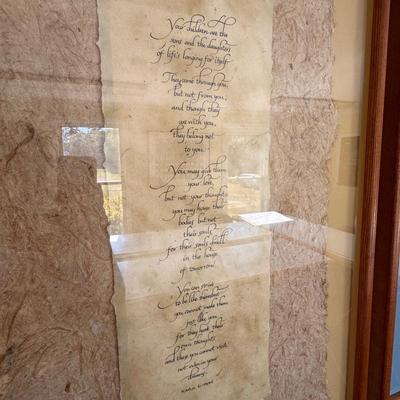 Your children are the
sons and the daughters
of life's longing for itself
They come through you,
but not from you,
and though they
are with you,
They belong not
to you.
You may give them
your love,
but not your thoughts
you may house their
bodies but not
their souls
for their souls dwell
in the house
of tomorrow.
You can strive
to be like them but
you cannot make them
just like you
for they have their
own thoughts
and these you cannot visit
not even in your
dreams.